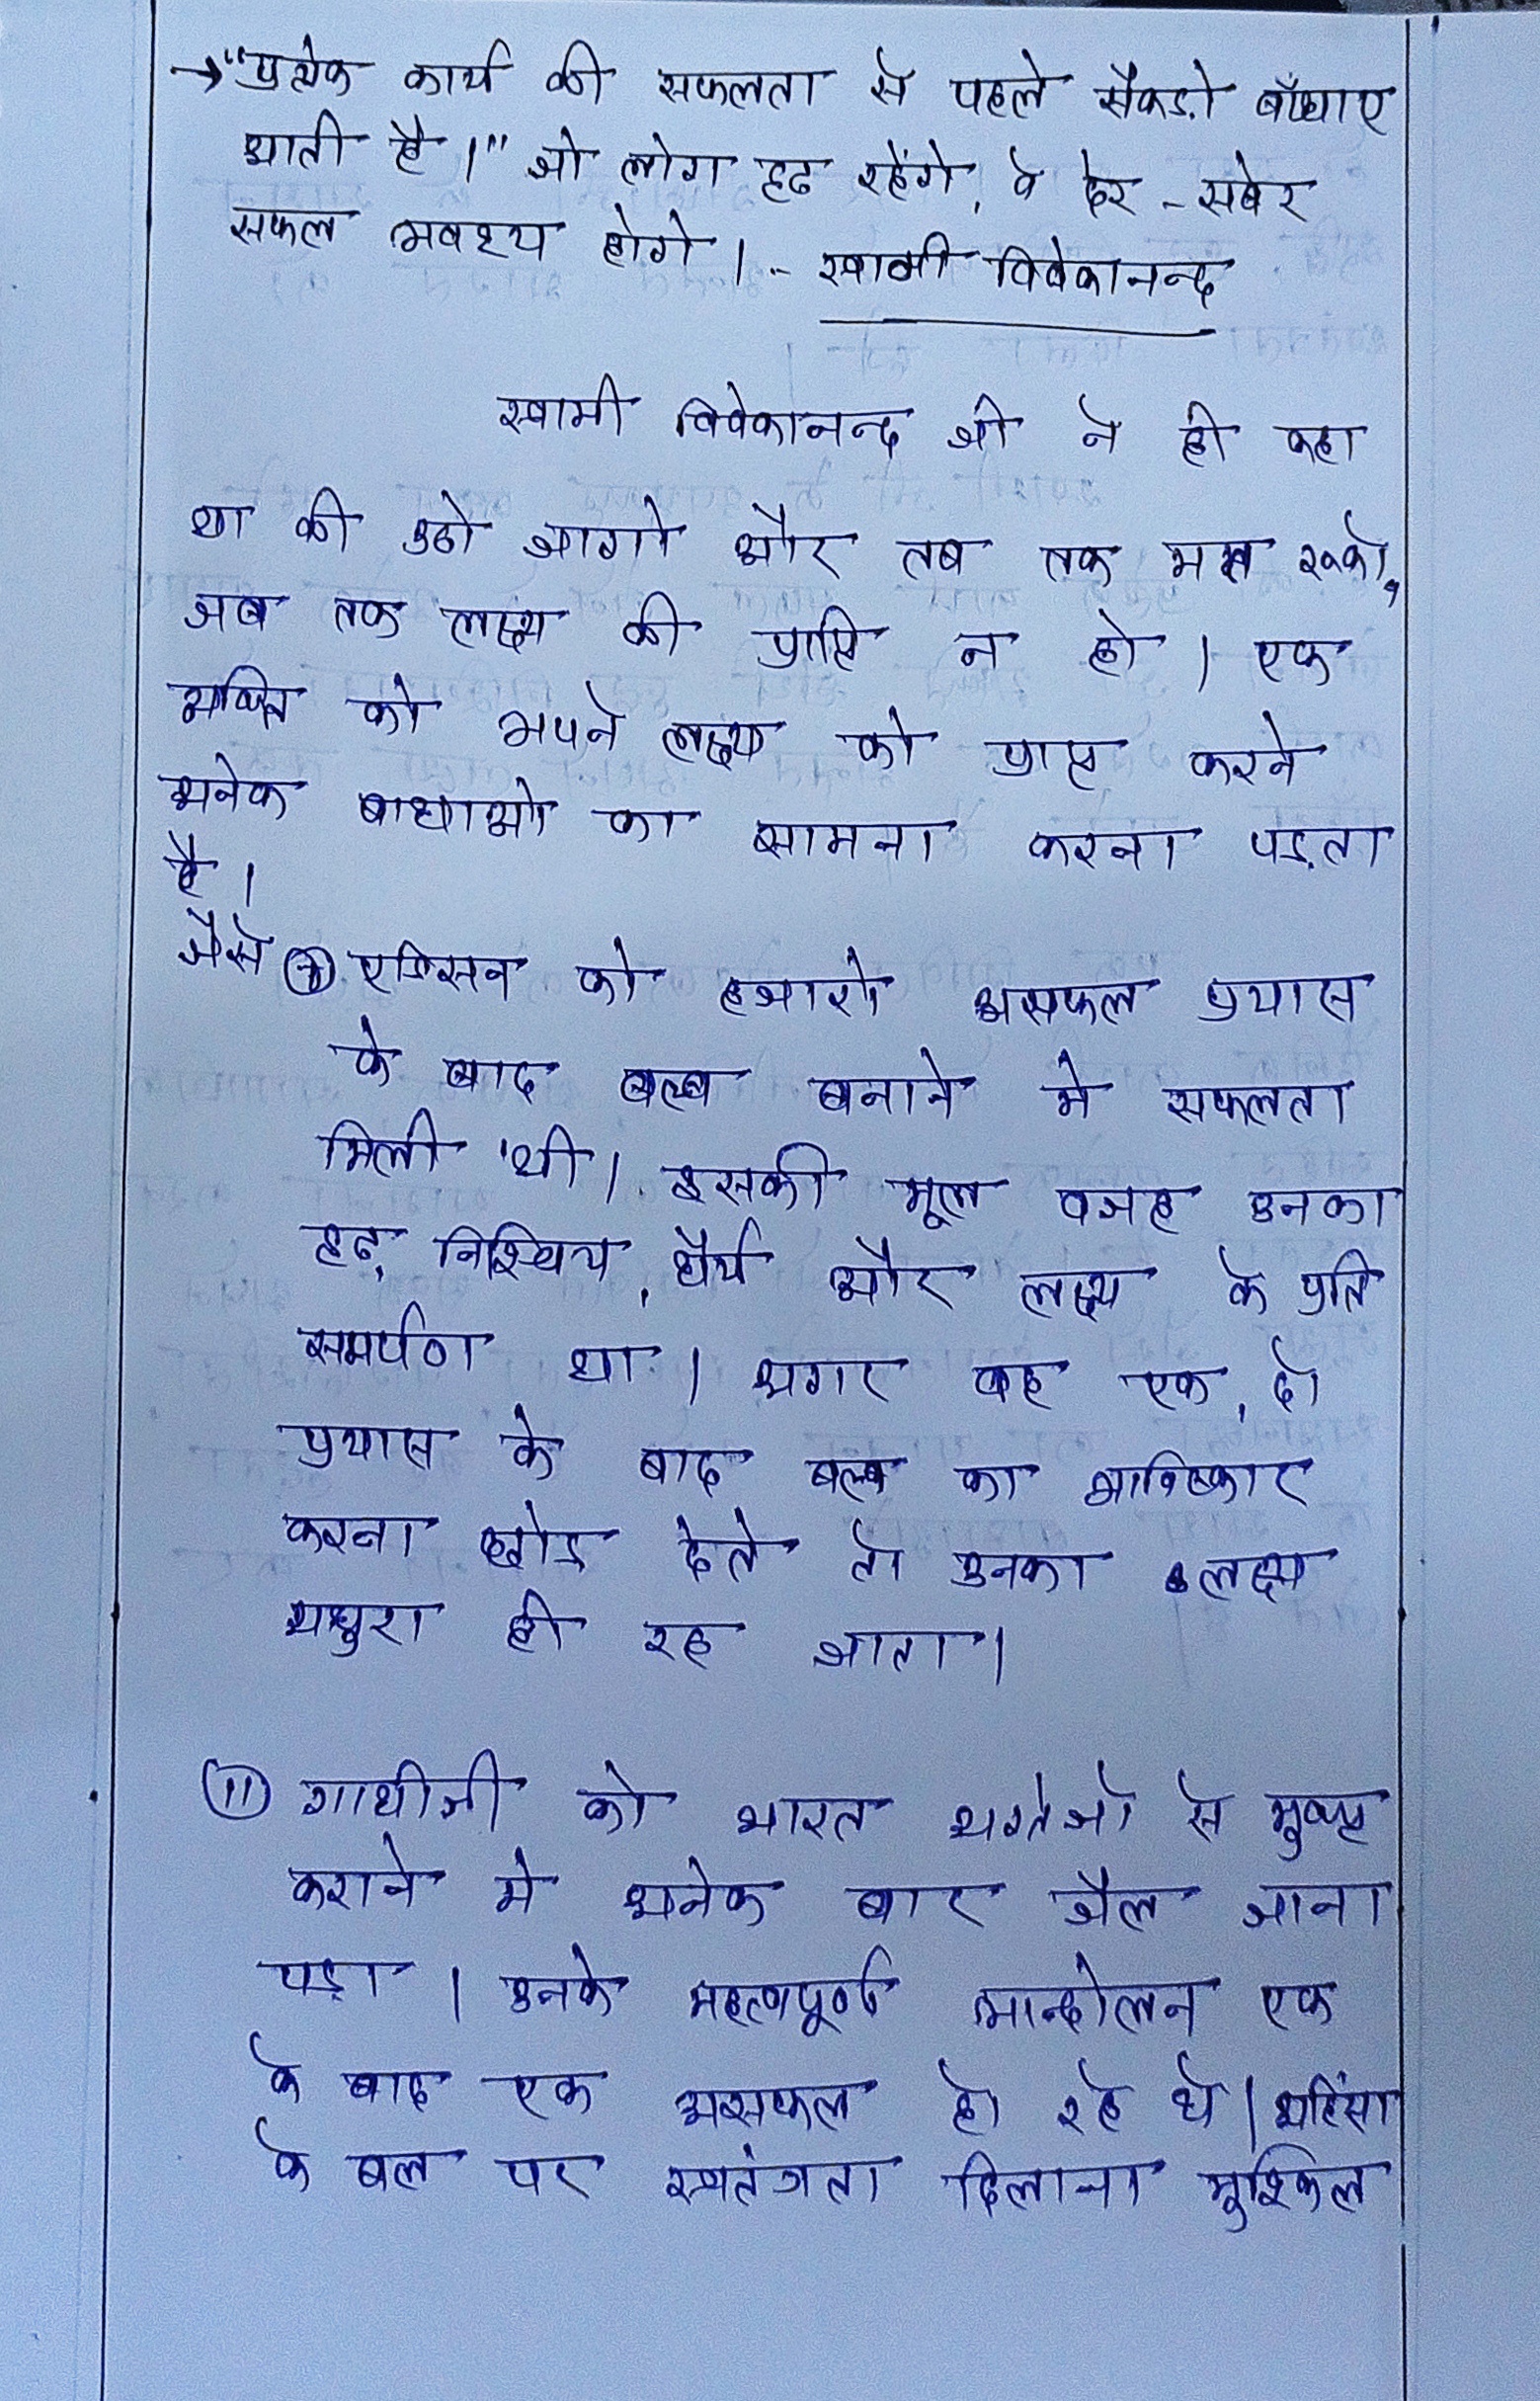 →"प्रत्येक कार्य की सफलता से पहले सैकड़ो बाँधाए
आती है।" जो लोग दृढ रहेंगे, वे देर - सबेर
सफल अवश्य होगे।- स्वामी विवेकानन्द
स्वामी विवेकानन्द जी ने ही कहा
था की उठो जागो और तब तक मत रुको,
जब तक लक्ष्य की प्राप्ति न हो। एक
व्यक्ति को अपने लक्ष्य को प्राप्त करने
अनेक बाधाओ का सामना करना पड़ता
है।
जैसे एडिसन को हजारो असफल प्रयास
के बाद बल्ब बनाने मे सफलता
मिली थी। इसकी मूल वजह उनका
दृढ़ निश्चिय, धैर्य और लक्ष्य के प्रति
समर्पण था। अगर वह एक, दो
प्रयास के बाद बल्ब का आविष्कार
करना छोड देते तो उनका लक्ष्य
अधुरा ही रह जाता।
(11) गाधीजी को भारत अग्रेजो से मुक्त
कराने मे अनेक बार जैल जाना
पड़ा। उनके महत्वपूर्ण आन्दोलन एक
के बाद एक असफल हो रहे थे। अहिंसा
के बल पर स्वतंत्रता दिलाना मुश्किल